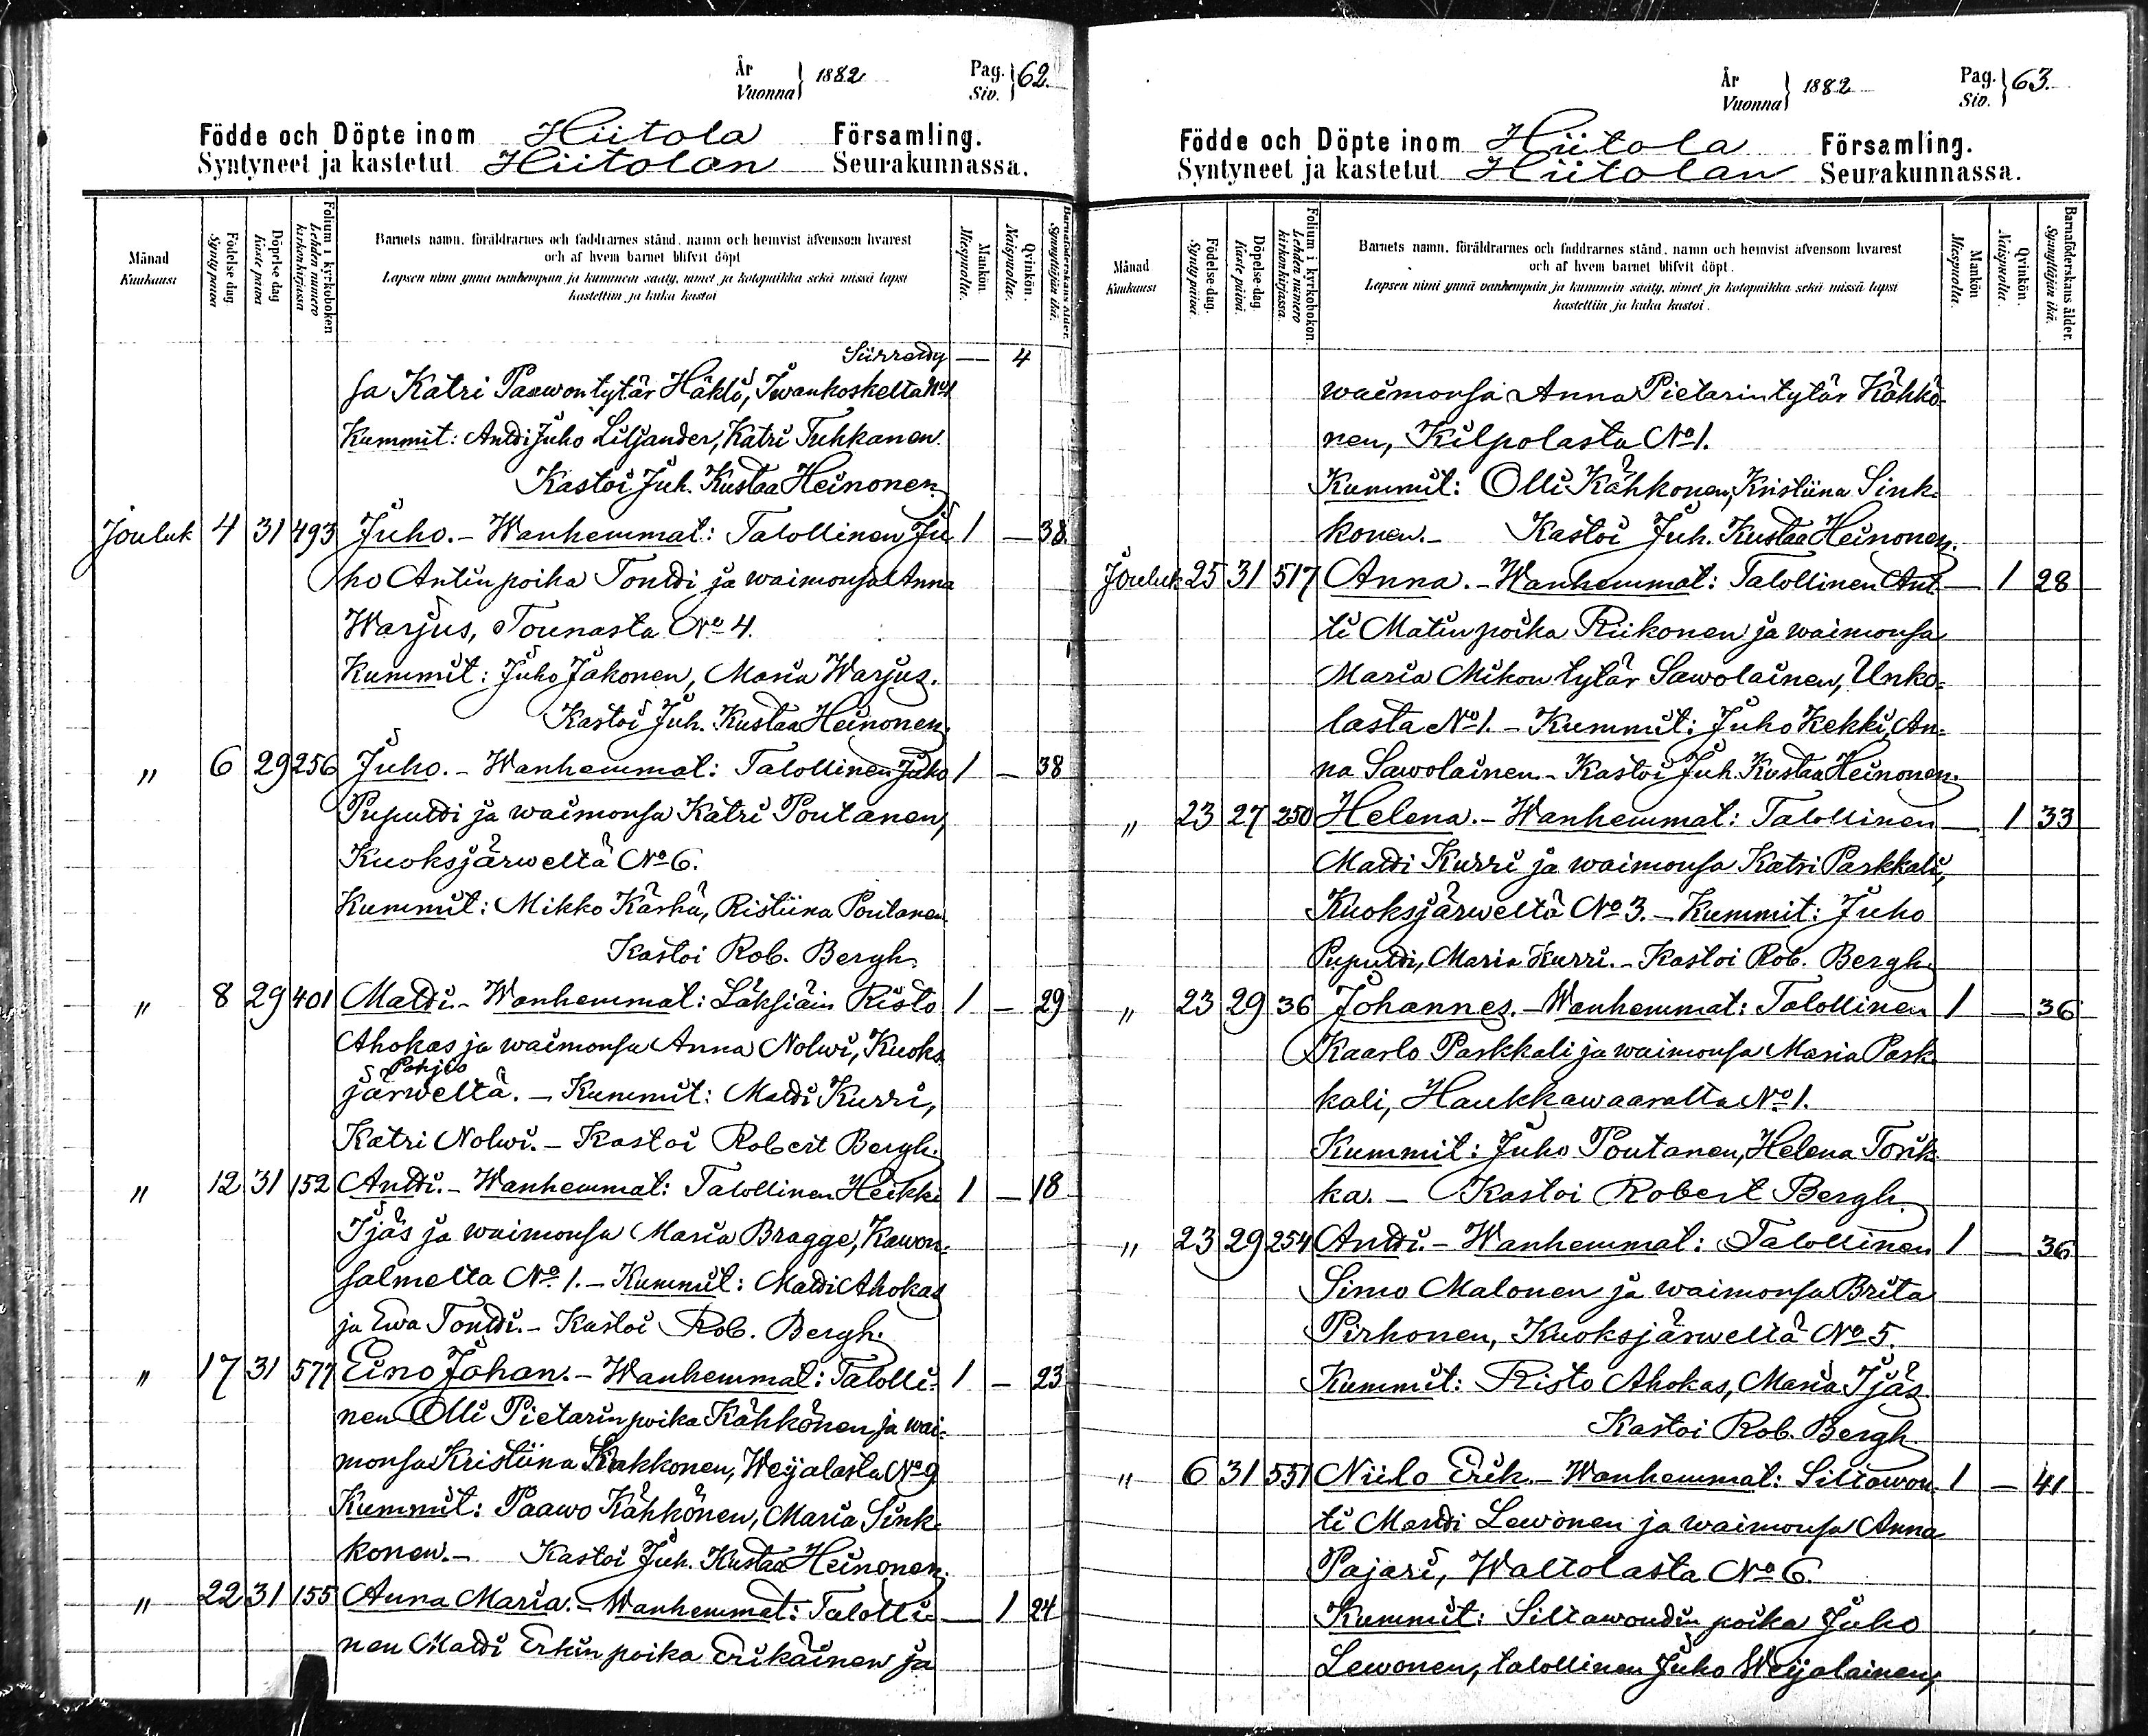 År
Vuonna } 1882
Pag.
Siv. } 62.
Födde och Döpte inom Hiitola Församling.
Syntyneet ja kastetut Hiitolan Seurakunnassa.
Månad
Kuukausi
Födelse dag
Synty päivä
Döpelse dag
Kaste päivä
Folium i kyrkoboken
Lehden numero kirkonkirjassa
Barnets namn, föräldrarnes och faddrarnes stånd, namn och hemvist äfvensom hvarest
och af hvem barnet blifvit döpt
Lapsen nimi ynnä vanhempain ja kummein sääty, nimet ja kotopaikka sekä missä lapsi
kastettiin ja kuka kastoi
Mankön.
Miespuolia.
Qvinkön.
Naispuolia.
Barnaföderskans ålder.
Synnyttäjän ikä.
— 4
sa Katri Paawontytär Häkli, Iwankoskelta No 1
Kummit: Antti Juho Liljander, Katri Tuhkanen.
Kastoi Juh. Kustaa Heinonen.
Jouluk 4 31 493 Juho. – Wanhemmat: Talollinen Ju 1 — 38.
ho Antinpoika Tontti ja waimonsa Anna
Warjus, Tounasta No 4.
Kummit: Juho Jakonen, Maria Warjus.
Kastoi Juh. Kustaa Heinonen.
" 6 29 256 Juho. – Wanhemmat: Talollinen Juho 1 — 38
Puputti ja waimonsa Katri Poutanen,
Kuoksjärweltä No 6.
Kummit: Mikko Kärhä, Ristiina Poutanen.
Kastoi Rob. Bergh.
" 8 29 401 Matti. – Wanhemmat: Läksiäin Risto 1 — 29
Ahokas ja waimonsa Anna Nolwi, Kuoks
järweltä. – Kummit: Matti Kurri,
Katri Nolwi. – Kastoi Robert Bergh.
" 12 31 152 Antti. – Wanhemmat: Talollinen Heikki 1 — 18
Ijäs ja waimonsa Maria Bragge, Kawon=
salmelta No 1. – Kummit: Matti Ahokas
ja Ewa Tontti. – Kastoi Rob. Bergh.
" 17 31 577 Eino Johan. – Wanhemmat: Talolli= 1 — 23
nen Olli Pietarinpoika Kähkönen ja wai=
monsa Kristiina Kakkonen, Weijalasta No 9
Kummit: Paawo Kähkönen, Maria Sink=
konen. – Kastoi Juh. Kustaa Heinonen.
" 22 31 155 Anna Maria. – Wanhemmat: Talolli — 1 24
nen Matti Erkinpoika Erikäinen ja
År
Vuonna } 1882
Pag.
Siv. } 63.
Födde och Döpte inom Hiitola Församling.
Syntyneet ja kastetut Hiitolan Seurakunnassa.
Månad
Kuukausi
Födelse-dag.
Synty päivä
Döpelse-dag.
Kaste päivä.
Folium i kyrkoboken
Lehden numero kirkonkirjassa.
Barnets namn, föräldrarnes och faddrarnes stånd, namn och hemvist äfvensom hvarest
och af hvem barnet blifvit döpt.
Lapsen nimi ynnä vanhempain ja kummein sääty, nimet ja kotopaikka sekä missä lapsi
kastettiin ja kuka kastoi.
Mankön
Miespuolia.
Qvinkön.
Naispuolia.
Barnaföderskans ålder.
Synnyttäjän ikä.
waimonsa Anna Pietarintytär Kähkö=
nen, Kilpolasta No 1.
Kummit: Olli Kähkonen, Kristiina Sink=
konen. – Kastoi Juh. Kustaa Heinonen.
Jouluk 25 31 517 Anna. – Wanhemmat: Talollinen Ant — 1 28
ti Matinpoika Riikonen ja waimonsa
Maria Mikontytär Sawolainen, Unko=
lasta No 1. – Kummit: Juho Kekki, An=
na Sawolainen. – Kastoi Juh. Kustaa Heinonen.
" 23 27 250 Helena. – Wanhemmat: Talollinen — 1 33
Matti Kurri ja waimonsa Katri Parkkali,
Kuoksjärweltä No 3. – Kummit: Juho
Puputti, Maria Kurri. – Kastoi Rob. Bergh.
" 23 29 36 Johannes. – Wanhemmat: Talollinen 1 — 36
Kaarlo Parkkali ja waimonsa Maria Park
kali, Haukkawaaralta No 1.
Kummit: Juho Poutanen, Helena Torik
ka. – Kastoi Robert Bergh.
" 23 29 254 Antti. – Wanhemmat: Talollinen 1 — 36
Simo Malonen ja waimonsa Brita
Pirhonen, Kuoksjärweltä No 5.
Kummit: Risto Ahokas, Maria Ijäs
Kastoi Rob. Bergh.
" 6 31 551 Niilo Erik. – Wanhemmat: Siltawou 1 — 41
ti Martti Lewonen ja waimonsa Anna
Pajari, Waltolasta No 6.
Kummit: Siltawoudin poika Juho
Lewonen, talollinen Juho Weijalainen,